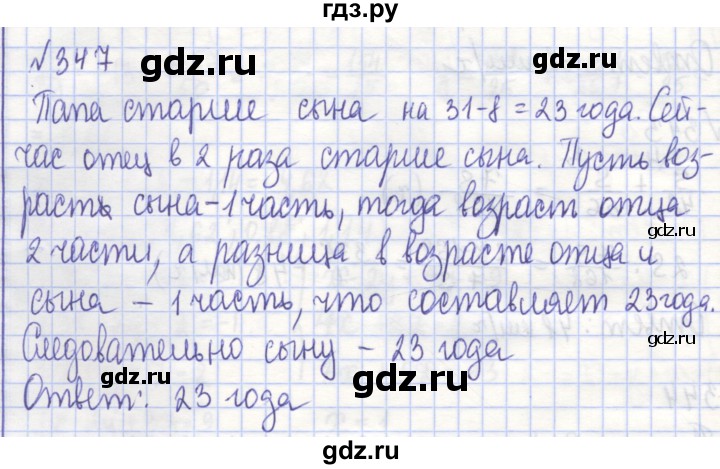 гдз.ру
№347
gdz.ru
gdz.ru
Папа старше сына на 31-8=23 года. Сей-
час отец в 2 раза старше сына. Пусть воз-
раст сына-1 часть, тогда возраст отца
gdz.ru
gdz.ru
2 части, а разница в возрасте отца и
сына - 1 часть, что составляет 23 года.
Следовательно сыну - 23 года
gdz.ru
gdz.ru
Ответ: 23 года
gdz.ru